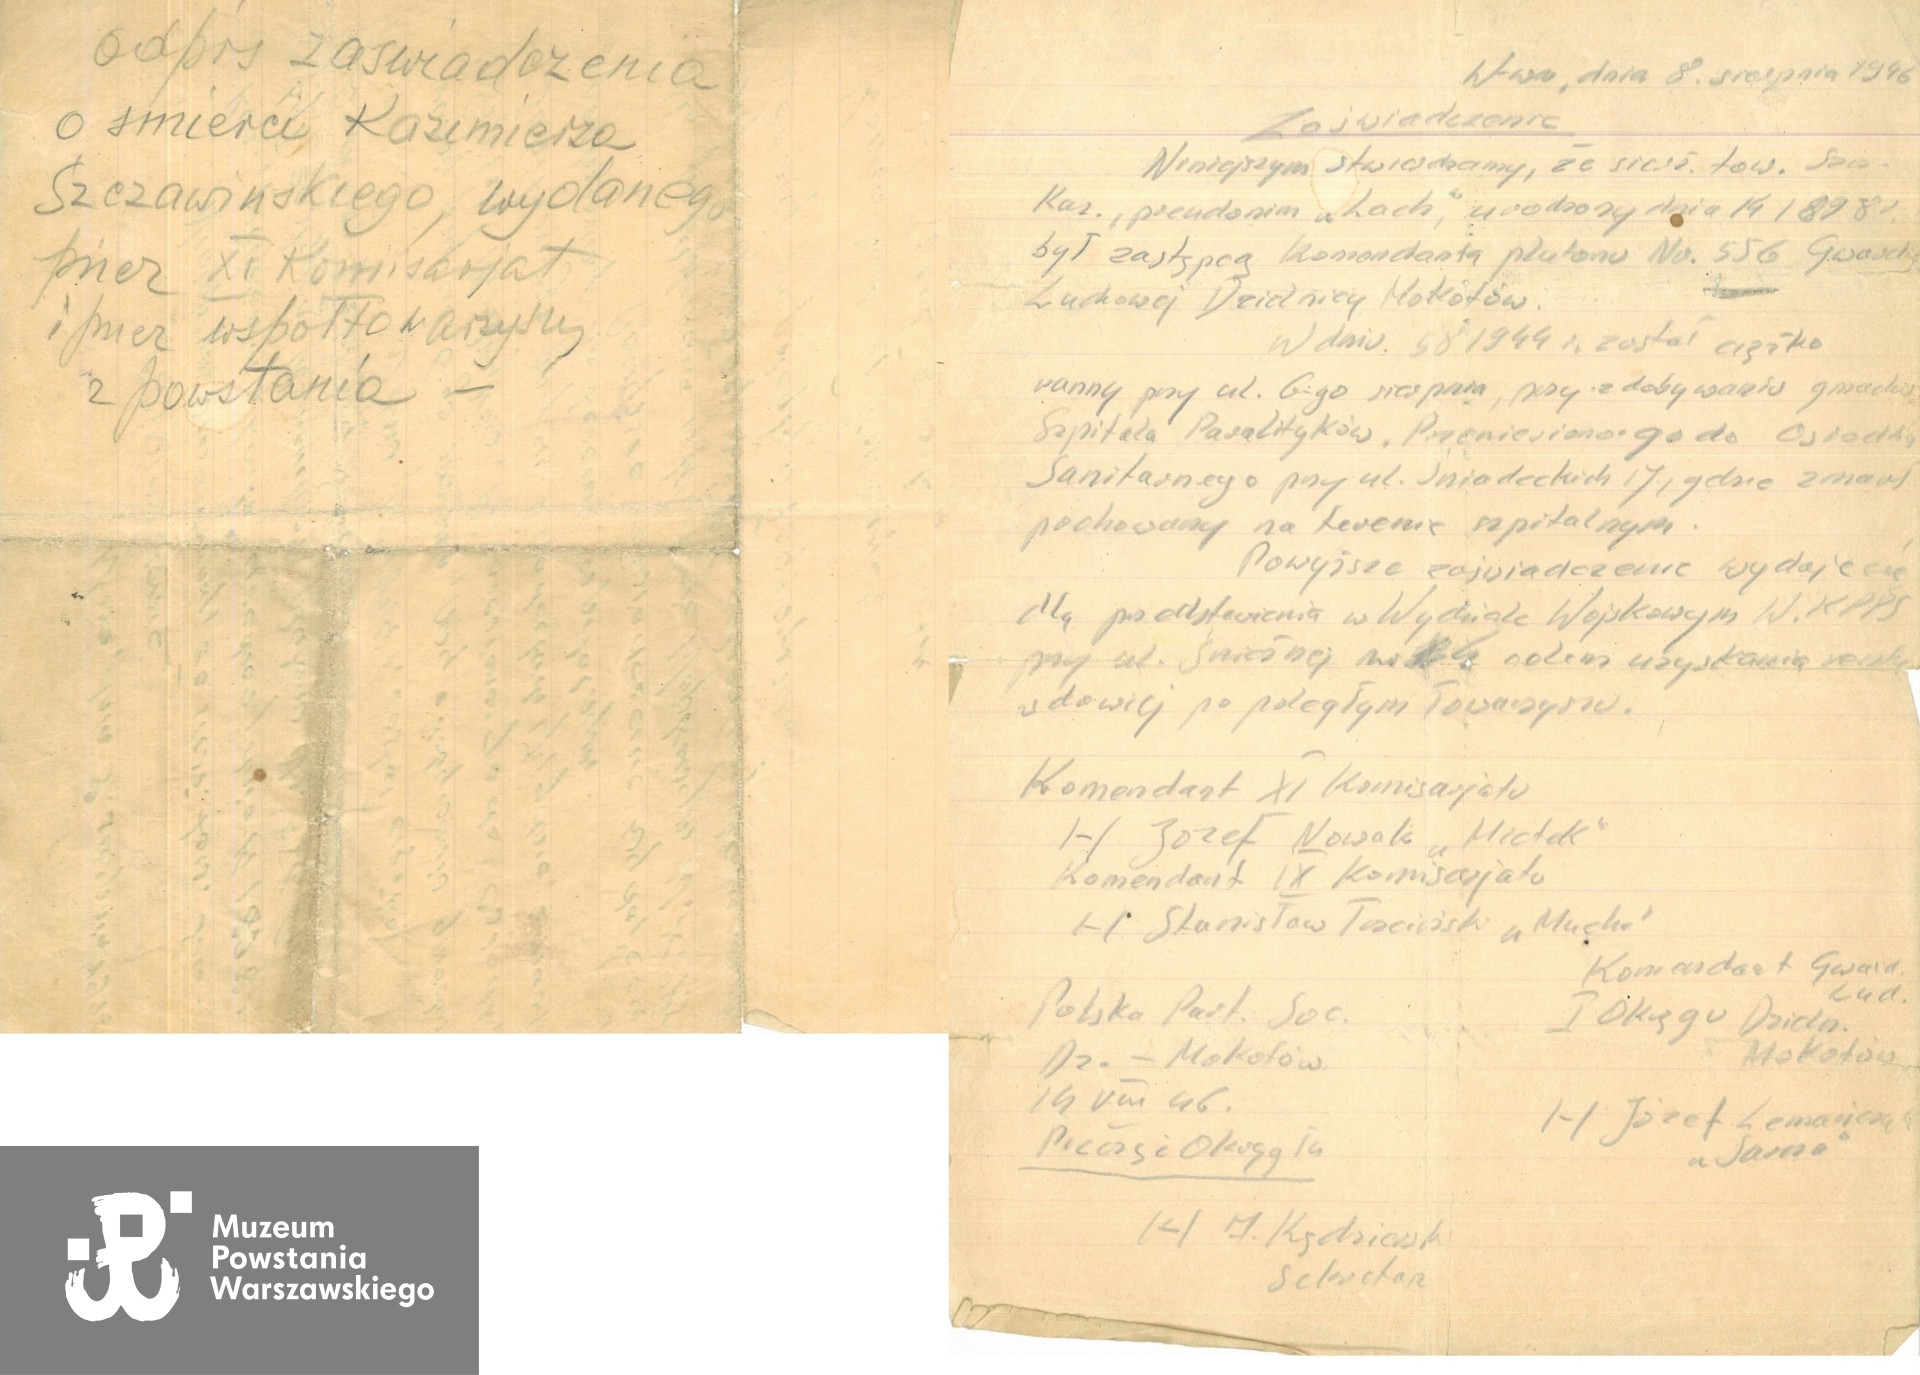 odpis zaświadczenia
o śmierci Kazimierza
Szczawińskiego, wydanego
przez XI Komisarjat
i przez współtowarzyszy
z powstania —
W-wa, dnia 8. sierpnia 1946
Zaświadczenie
Niniejszym stwierdzamy, że sierż. tow. Szcz.
Kaz., pseudonim „Lach", urodzony dnia 19 I 898 r.
był zastępcą Komendanta plutonu No. 556 Gwardii
Ludowej Dzielnicy Mokotów.
W dniu. 5 8 1944 r. został ciężko
ranny przy ul. 6-go sierpnia, przy zdobywaniu gmachu
Szpitala Paralityków. Przeniesiono go do Ośrodka
Sanitarnego przy ul. Śniadeckich 17, gdzie zmarł
pochowany na terenie szpitalnym.
Powyższe zaświadczenie wydaje się
dla przedstawienia w Wydziale Wojskowym W.K.PPS
przy ul. Śnieżnej celem uzyskania renty
wdowiej po poległym Towarzyszu.
Komendant XI Komisarjatu
/-/ Józef Nowak „Mietek"
Komendant IX Komisarjatu
/-/ Stanisław „Mucha"
Komendant Gward.
Lud.
I Okręgu Dzieln.
Mokotów
/-/ Józef
„Sarna"
Polska Part. Soc.
Dz. — Mokotów
14 VIII 46.
Pieczęć Okrągła
/-/ J.
Sekretarz
Muzeum
Powstania
Warszawskiego